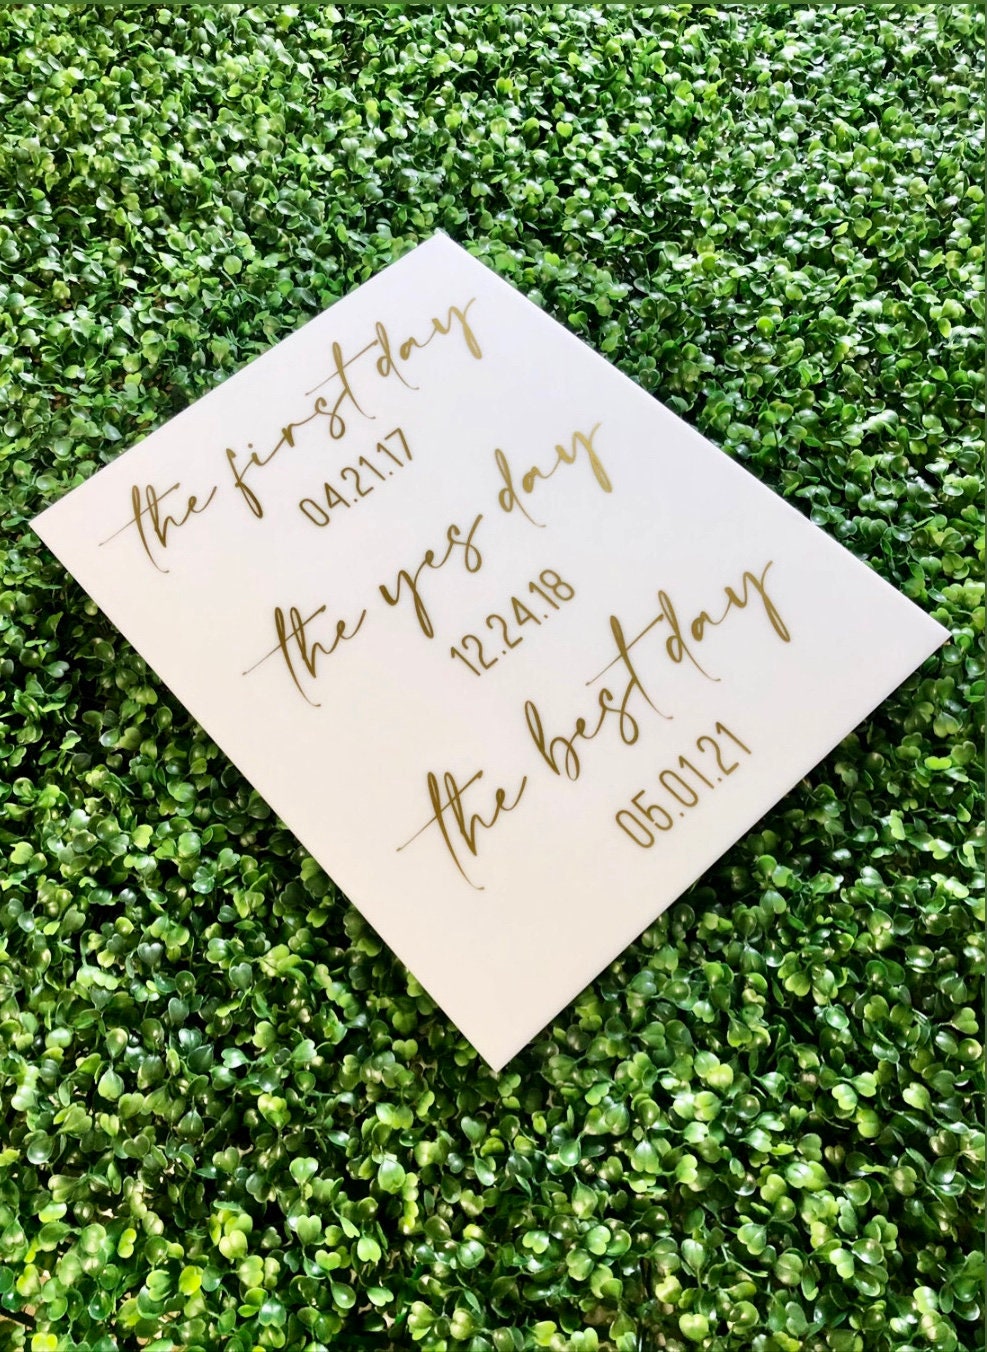 the first day
04.21.17
the yes day
12.24.18
the best day
05.01.21